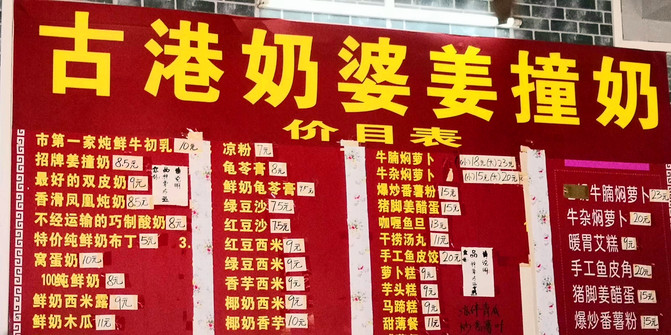 古港奶婆姜撞奶
价目表
市第一家炖鲜牛初乳 10元
招牌姜撞奶 8.5元
最好的双皮奶 9元
香滑凤凰炖奶 8.5元
不经运输的巧制酸奶 8元
特价纯鲜奶布丁 5元 3.
窝蛋奶 10元
100纯鲜奶 8元
鲜奶西米露 9元
鲜奶木瓜 11元
凉粉 7元
龟苓膏 8元
鲜奶龟苓膏
绿豆沙 7.5元
红豆沙 7.5元
红豆西米 9元
绿豆西米 9元
香芋西米 9元
椰奶西米 9元
椰奶香芋 10元
牛腩焖萝卜 (小)18元(大)23元
牛杂焖萝卜 (小)15元(大)20元
爆炒番薯粉 15元
猪脚姜醋蛋 15元
咖喱鱼旦 13元
干捞汤丸 11元
手工鱼皮饺 20元
萝卜糕 9元
芋头糕 9元
马蹄糕 9元
甜薄餐 11元
牛腩焖萝卜 23元
牛杂焖萝卜 20元
暖胃艾糕 9元
手工鱼皮角 20元
猪脚姜醋蛋 15元
爆炒番薯粉 15元